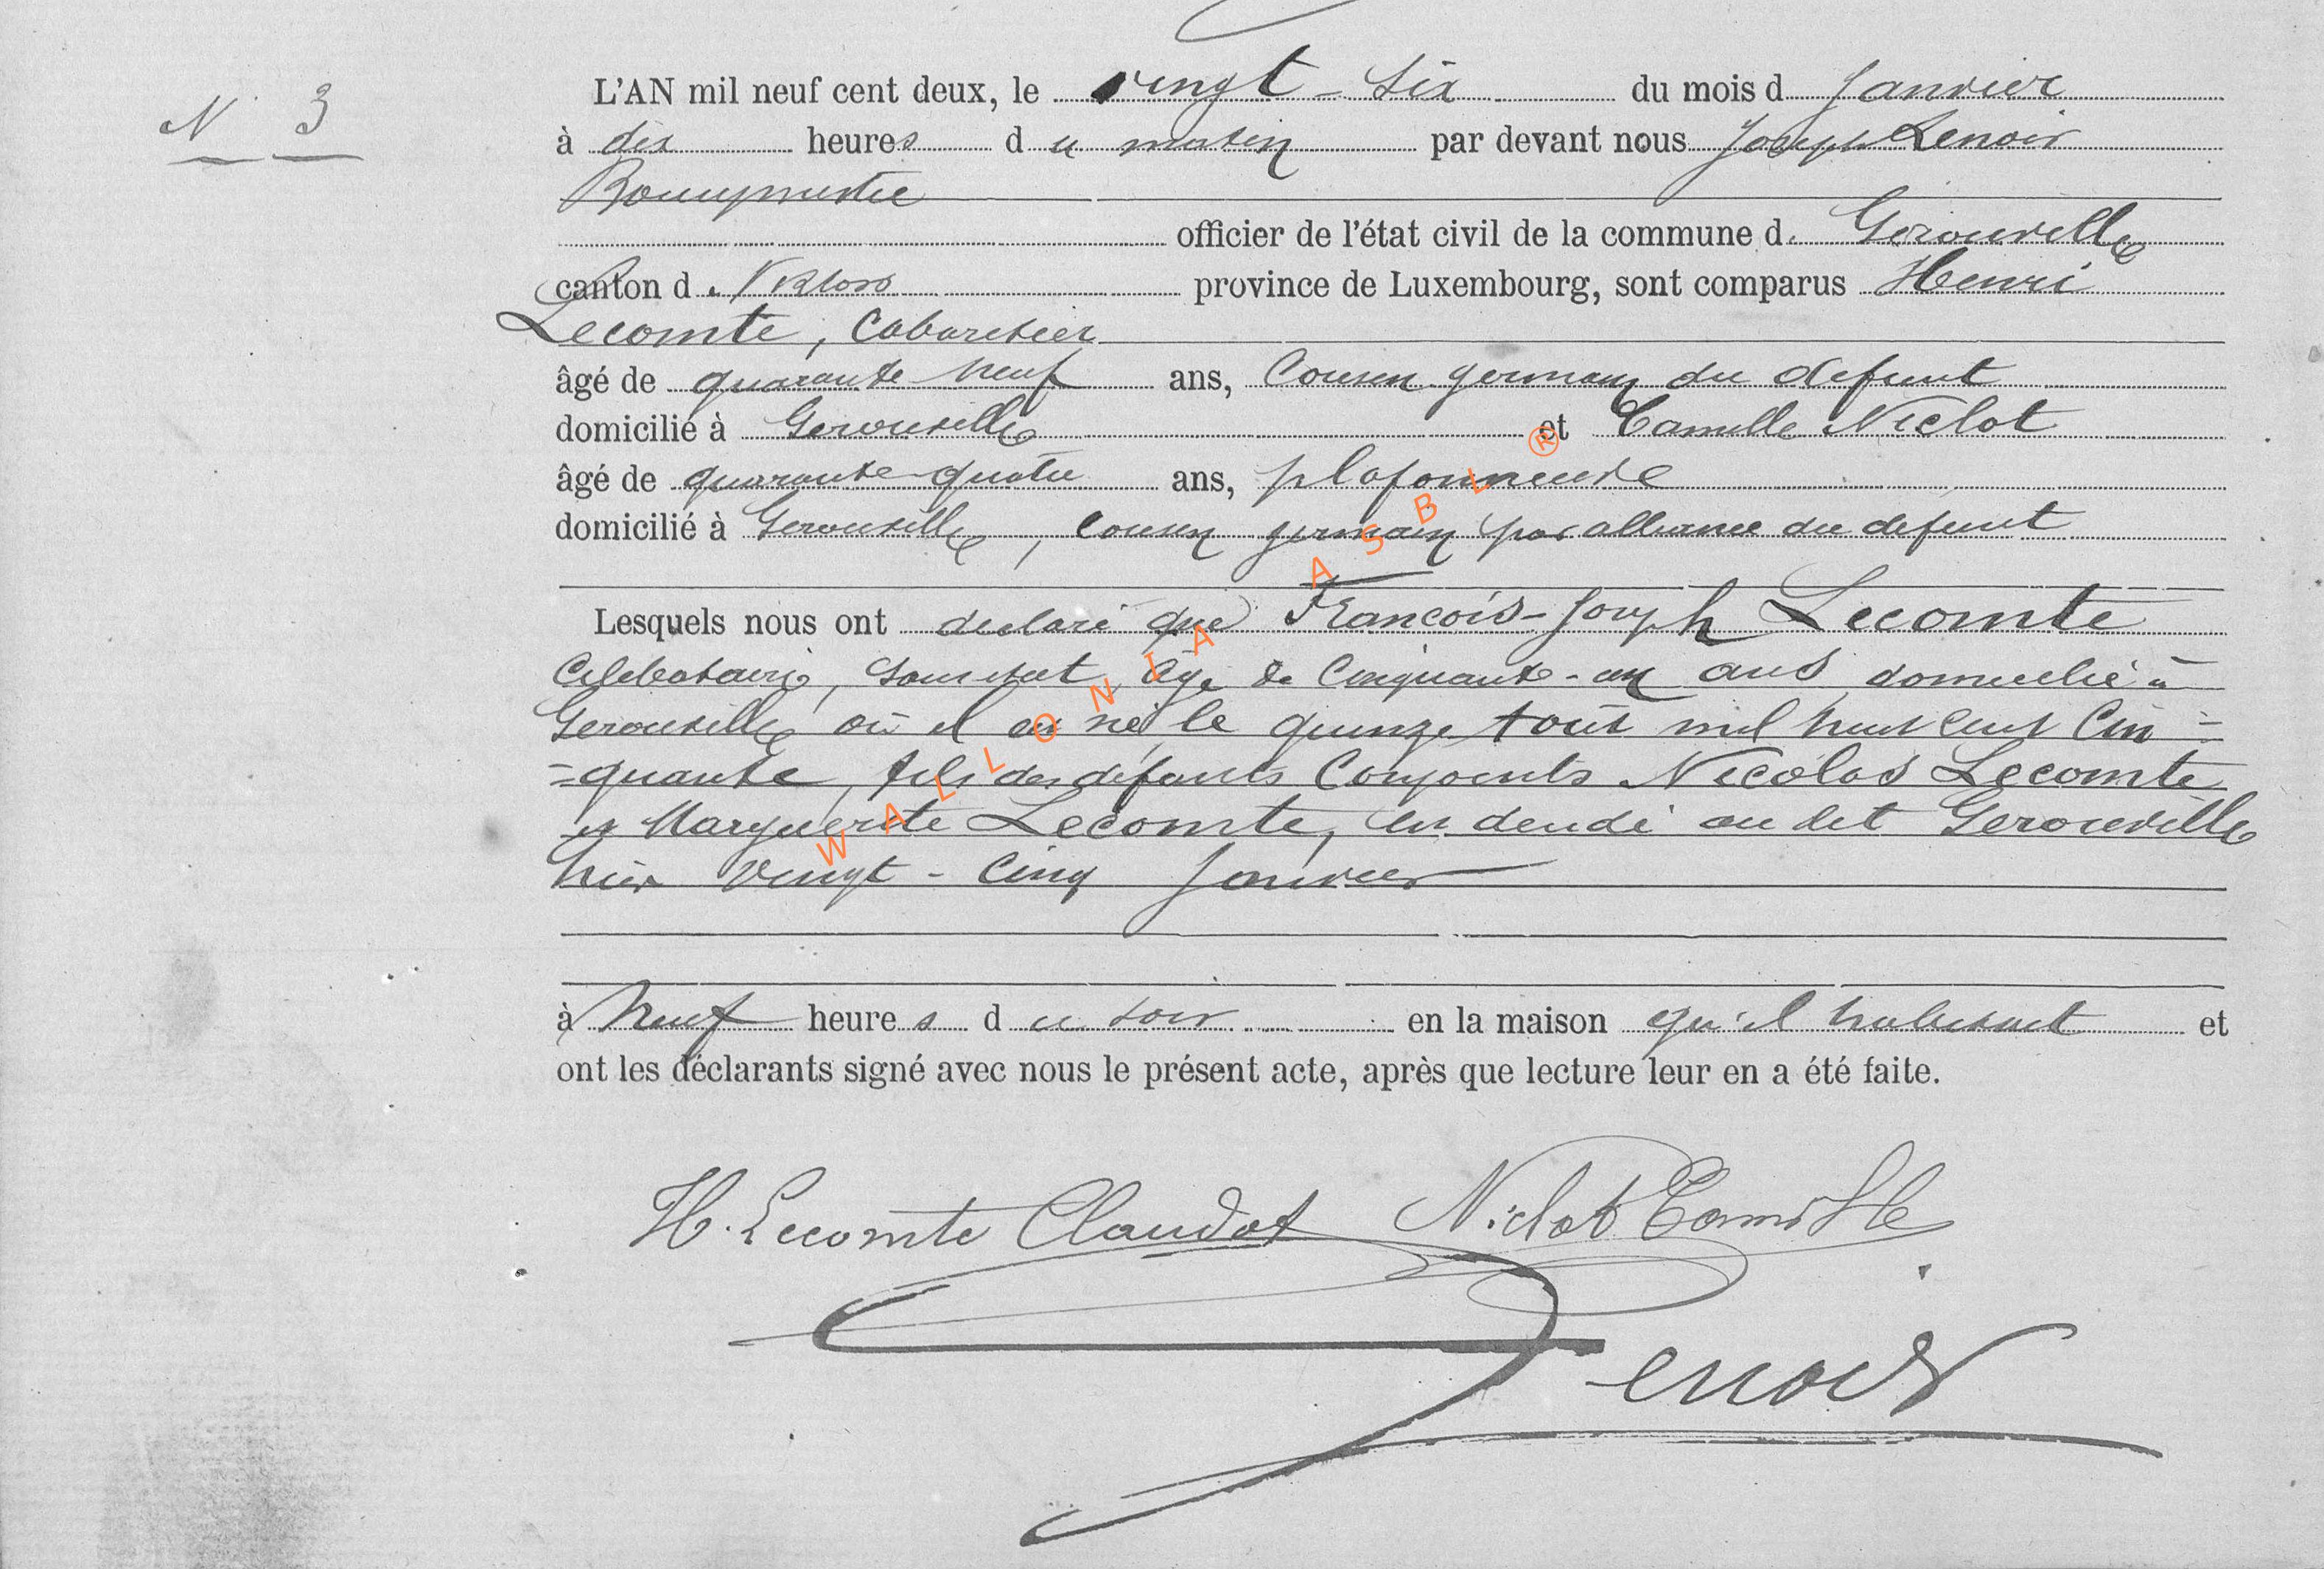 N 3
L'AN mil neuf cent deux, le vingt-six du mois d Janvier
à dix heures du matin par devant nous Joseph Lenoir
Bourgmestre
officier de l'état civil de la commune d. Gerouville
canton d. Virton province de Luxembourg, sont comparus Henri
Lecomte, Cabaretier
âgé de quarante neuf ans, Cousin germain du defunt
domicilié à Gerouville et Camille Niclot
âgé de quarante-quatre ans, plafonneur
domicilié à Gerouville, cousin germain par alliance du defunt
Lesquels nous ont declaré que François-Joseph Lecomte
Celebataire, age de Cinquante-un ans domicilié à
Gerouville où il est né le quinze Août mil huit cent Cin=
=quante, fils des défunts Conjoints Nicolas Lecomte
et Marguerite Lecomte, est decedé au dit Gerouville
hier Vingt-Cinq Janvier
à Neuf heures du soir en la maison qu'il habitait et
ont les déclarants signé avec nous le présent acte, après que lecture leur en a été faite.
H. Lecomte Claudot Niclot Camille
Lenoir
WALLONIA ASBL ®